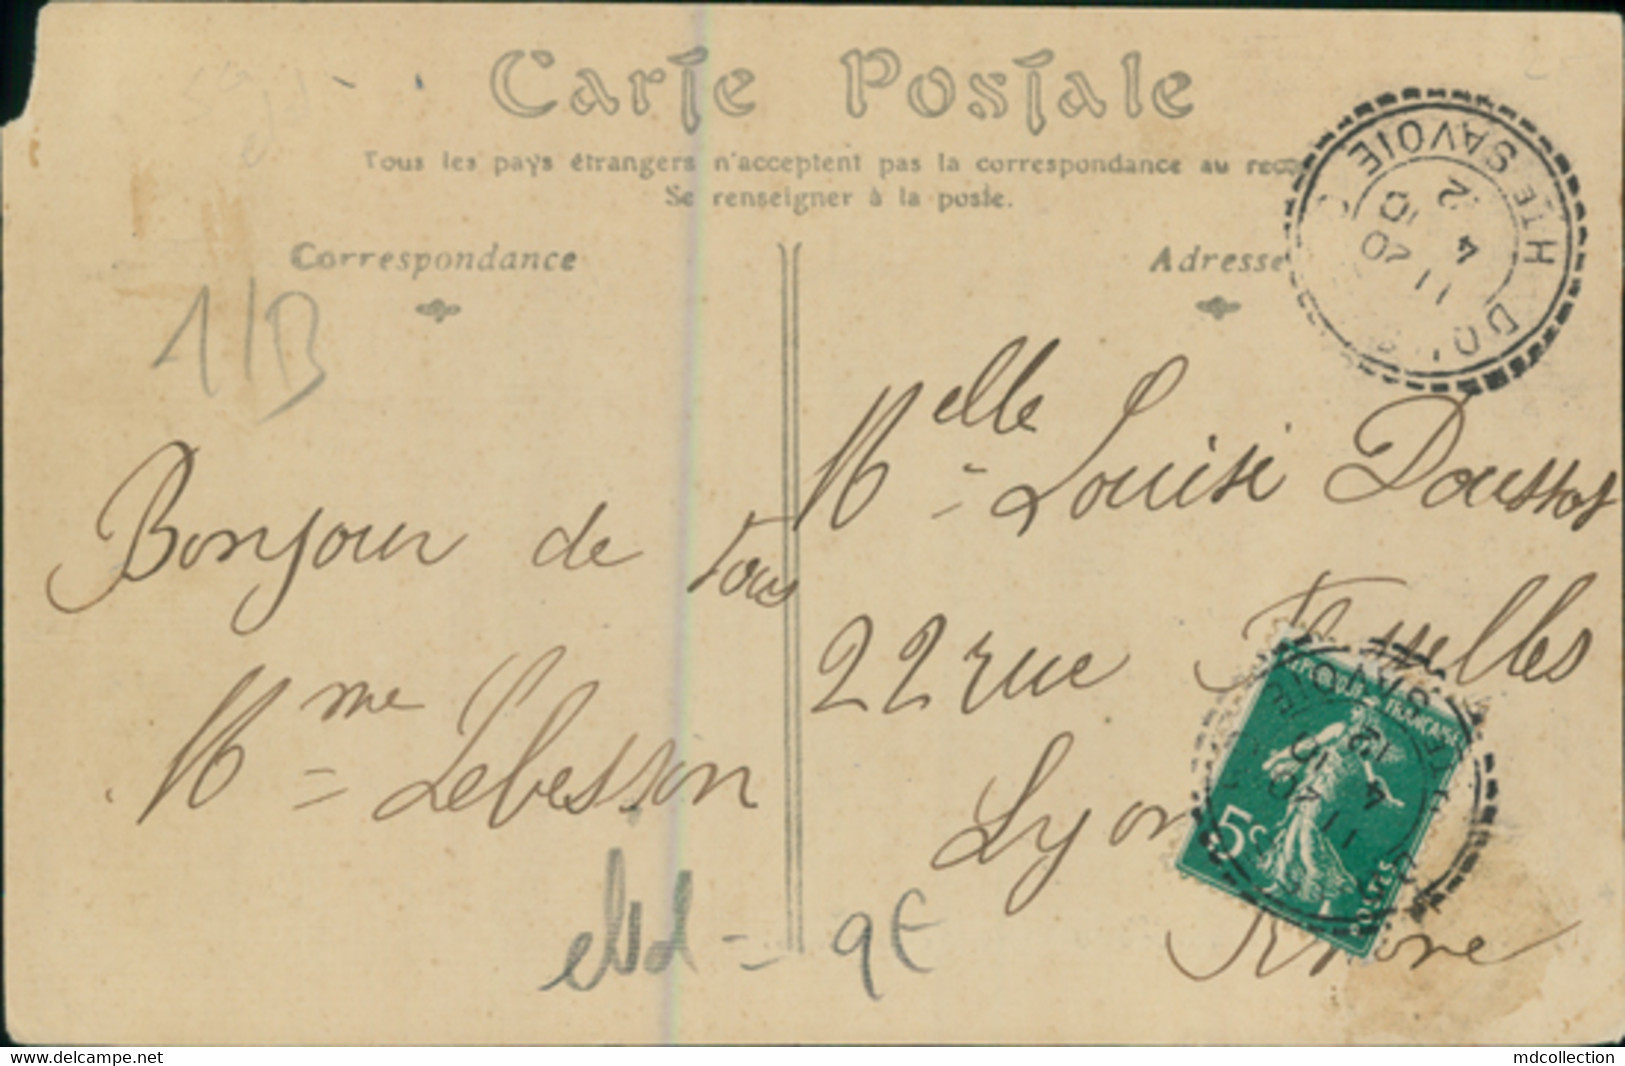 Carte Postale
Tous les pays étrangers n'acceptent pas la correspondance au
Se renseigner à la poste.
Correspondance
Adresse
HTE SAVOIE
11 20
4 12
10
1/B
Bonjour de Tous
Mme = Lebesson
Melle = Louise Doussot
22 rue
Lyon
Rhône
REPUBLIQUE FRANÇAISE
5c
POSTES
9€
www.delcampe.net
mdcollection